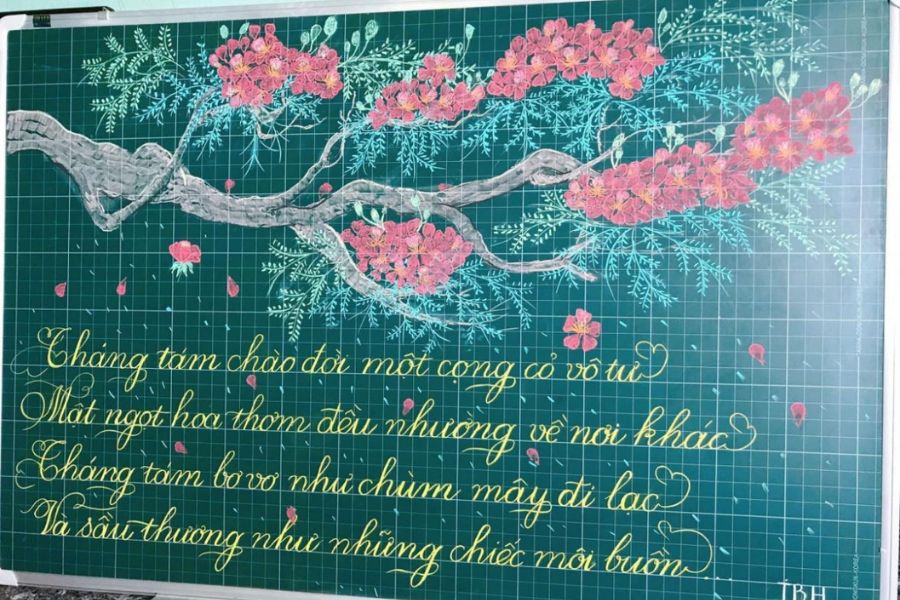 Tháng tám chào đời một cọng cỏ vô tư
Mật ngọt hoa thơm đều nhường về nơi khác
Tháng tám bơ vơ như chùm mây đi lạc
Và sầu thương như những chiếc môi buồn...
IBH